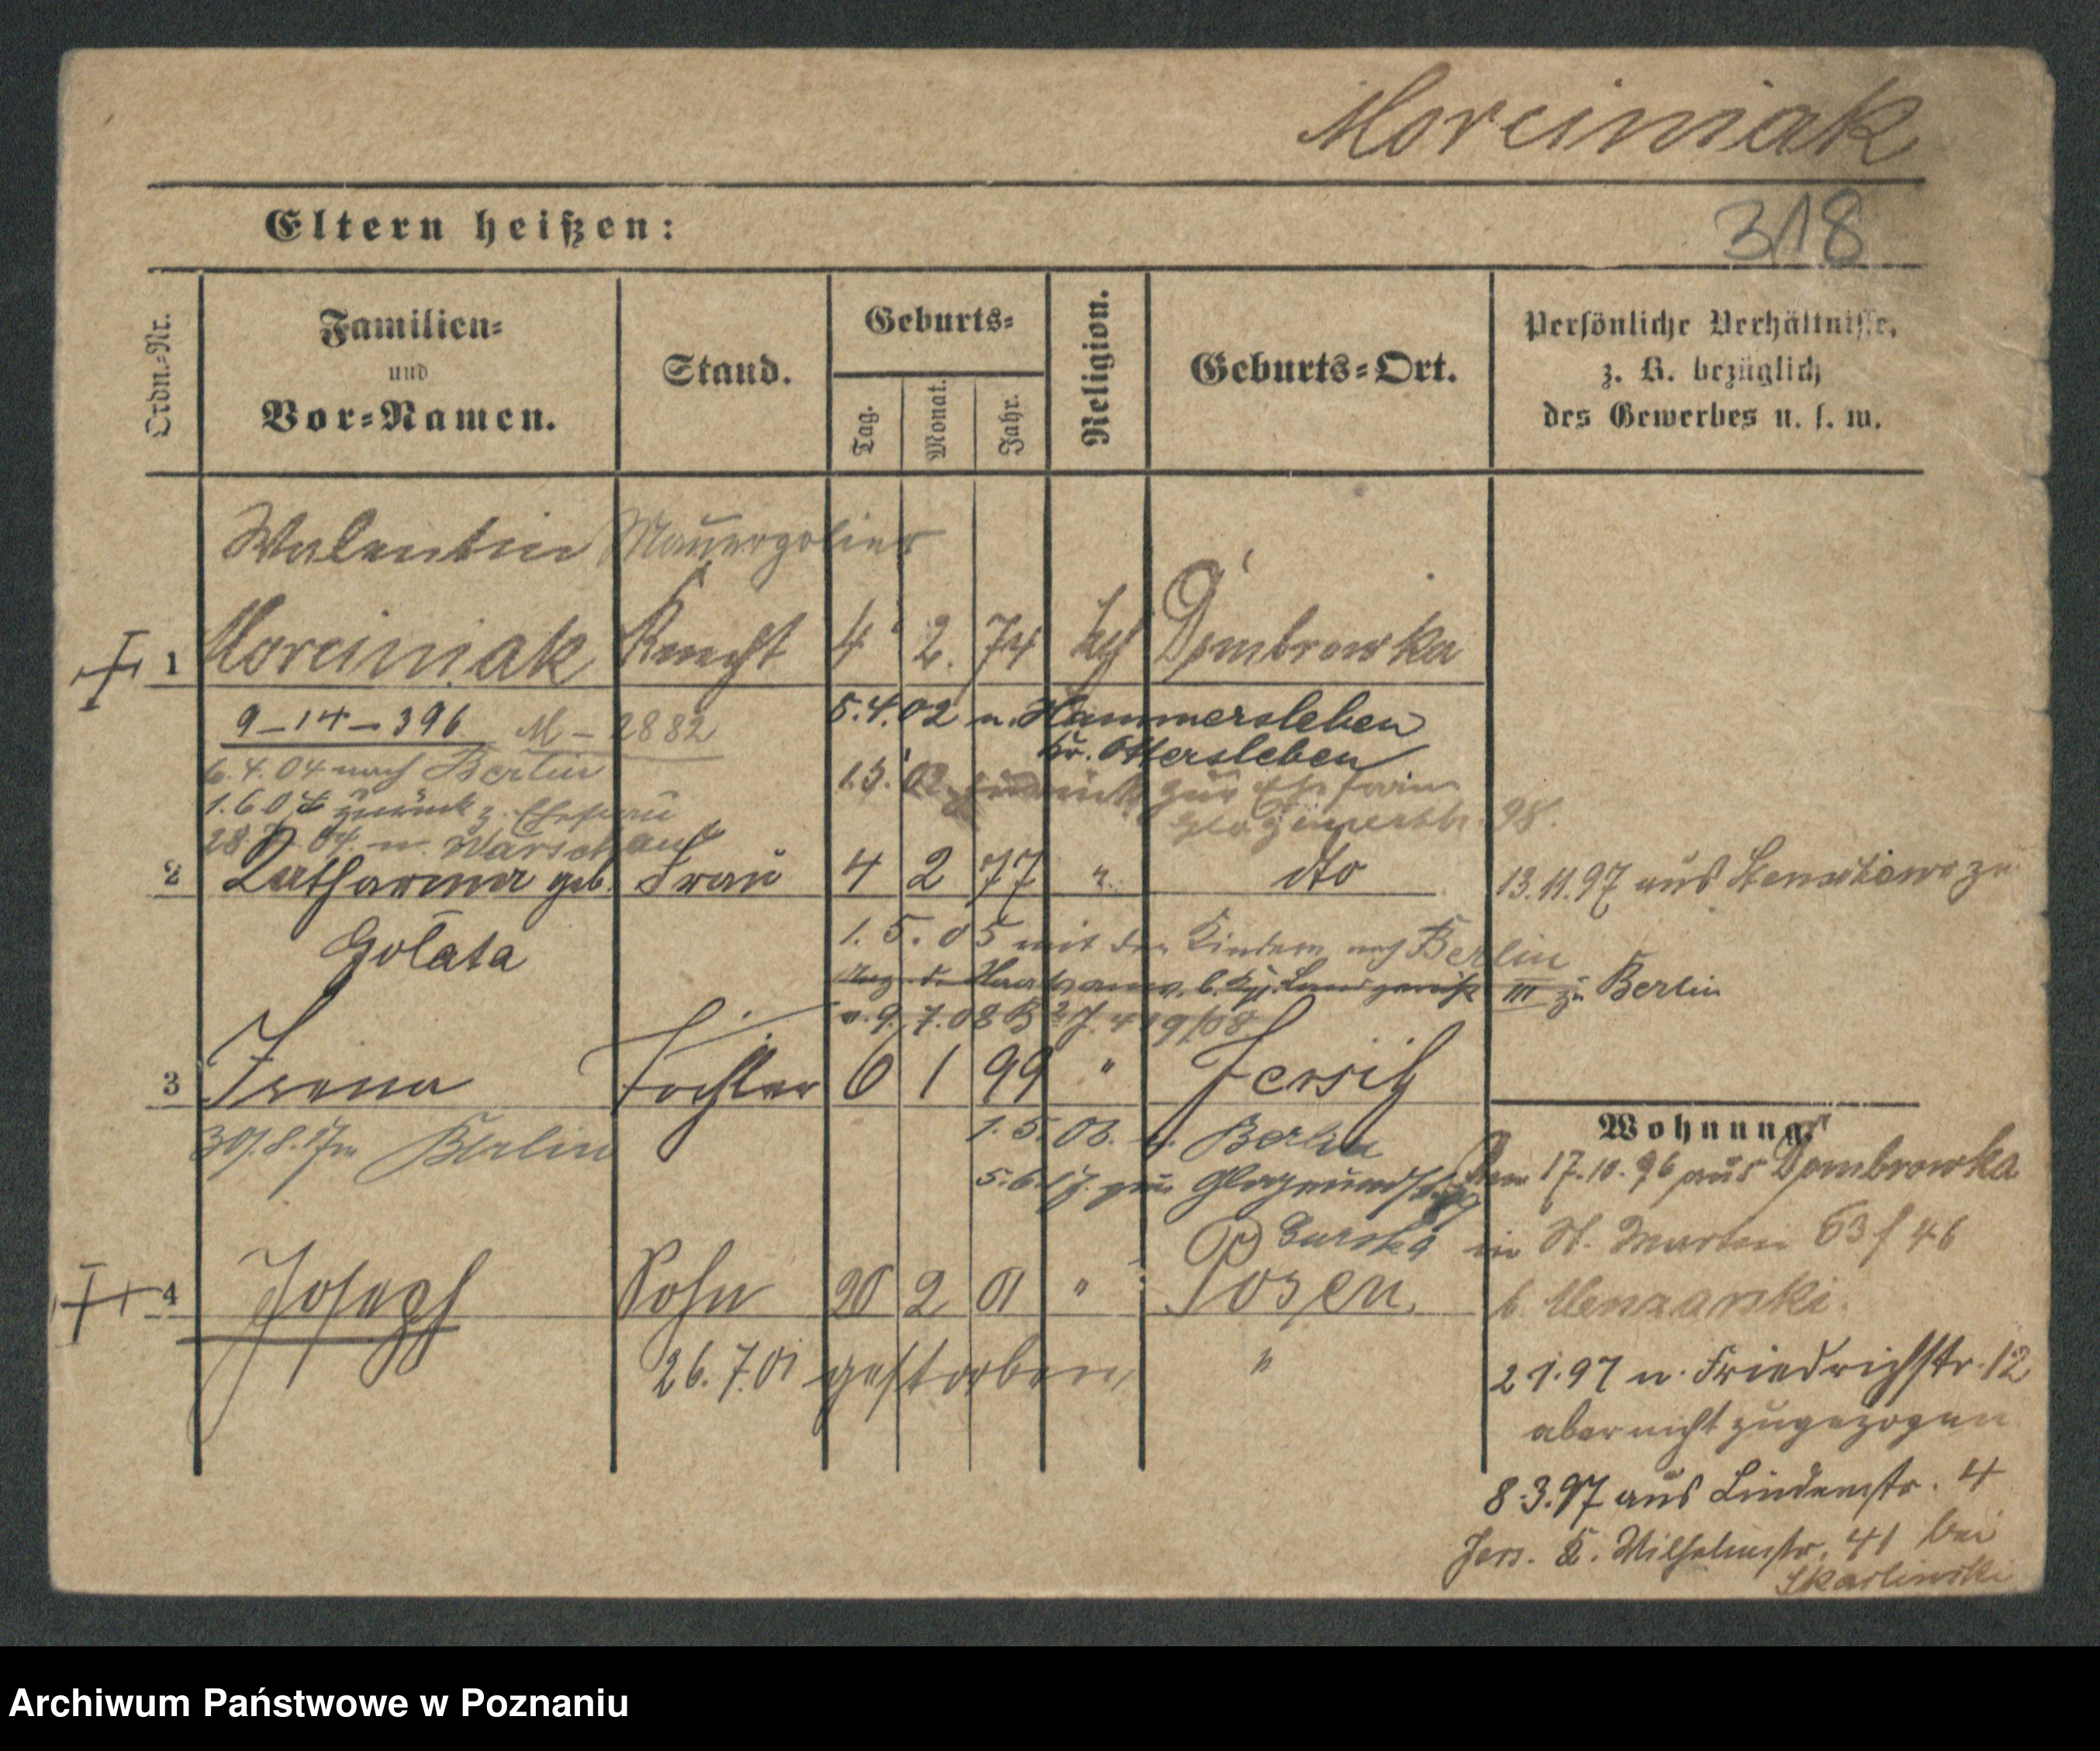 Morciniak
Eltern heißen:
318
Ordn.-Nr.
Familien-
und
Vor-Namen.
Stand.
Geburts-
Tag.
Monat.
Jahr.
Religion.
Geburts-Ort.
Persönliche Verhältnisse,
z. B. bezüglich
des Gewerbes u. s. w.
Walentin Mauerpolier
1 Morciniak Knecht 4 2. 74 kth Dombrowka
9-14-396 M-2882
5.4.02 n. Hammersleben
Kr. Ottersleben
6.4.04 nach Berlin
1.5.02 zurück zur Ehefrau
1.6.04 zurück z. Ehefrau
Glogauerstr. 98.
28. 04. n. Warschau
2 Katharina geb. Frau 4 2 77 " dto
13.11.97 aus Zu
Golata
1.5.05 mit den Kindern nach Berlin
III zu Berlin
v. 9.7.08
3 Irena Tochter 6 1 99 " Jersitz
30.8.17 n Berlin
1.5.03. n. Berlin
5.6.17.
Wohnung.
17.10.96 aus Dombrowka
in St. Martin 63 f 46
Gurska
4 Joseph Sohn 20 2 01 " Posen.
b.
26.7.01 gestorben "
2 1.97 n. Friedrichstr. 12
aber nicht zugezogen
8.3.97 aus Lindenstr. 4
Jers. K. Wilhelmstr. 41 bei
Skarlinski
Archiwum Państwowe w Poznaniu